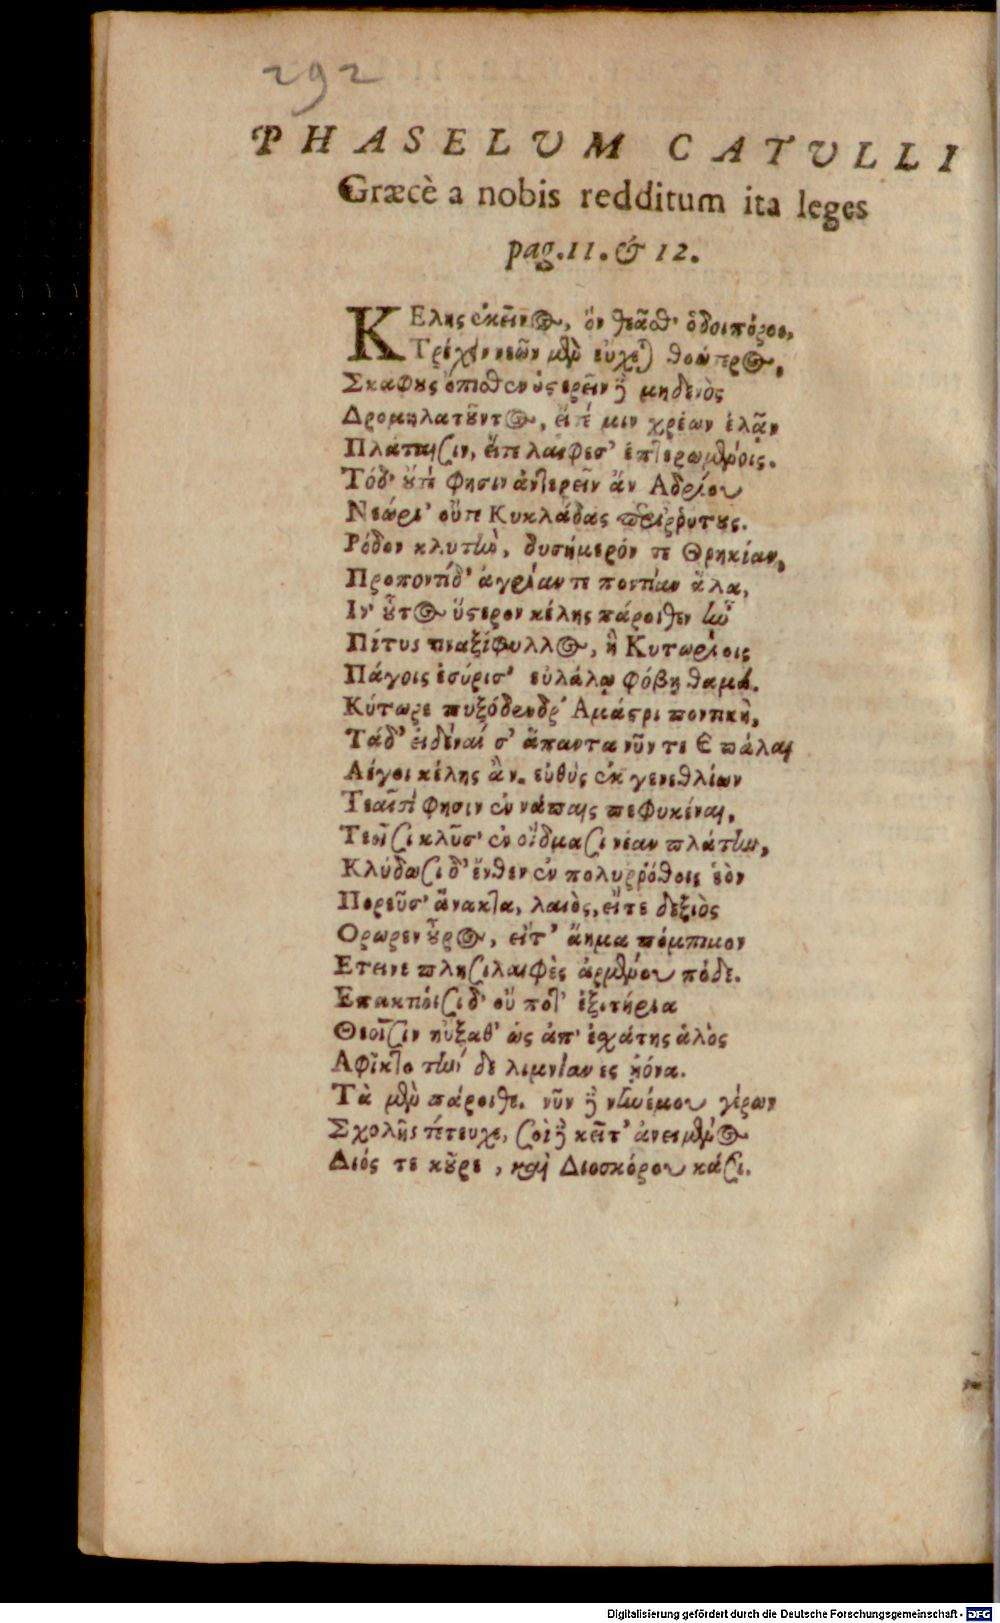 292
PHASELUM CATULLI
Græcè a nobis redditum ita leges
pag. 11. & 12.
ΚΕλης ἐκεῖνος, ὅν θεᾶσθ' ὁδοιπόροι,
Τρέχειν νεῶν μὲν εὔχεται θοώτερος,
Σκαφους ὄπισθεν ὑστερεῖν δὲ μηδενὸς
Δρομηλατοῦντος, εἴτέ μιν χρέων ἐλᾶν
Πλάταισιν, εἴτε λαίφεσ' ἐπτερωμένοις.
Τόδ' οὔτέ φησιν ἀντερεῖν ἄν Αδρίου
Νεώρι' οὔτε Κυκλάδας περιῤῥύτους.
Ρόδον κλυτὴν, δυσήμερόν τε Θρηκίαν,
Προποντίδ' ἀγρίαν τε ποντίαν ἅλα,
Ιν' οὗτος ὕστερον κέλης πάροιθεν ἦν
Πίτυς πυαξίφυλλος, ἢ Κυτωρίοις
Πάγοις ἐσύρισ' εὐλάλῳ φόβῃ θαμά.
Κύτωρε πυξόδενδρ' Αμάστρι ποντικὴ,
Τάδ' εἰδέναί σ' ἅπαντα νῦν τε καὶ πάλαι
Λέγοι κέλης ἂν. εὐθὺς ἐκ γενεθλίων
Τεαῖσί φησιν ἐν νάπαις πεφυκέναι,
Τεοῖσι κλῦσ' ἐν οἴδμασι νέαν πλάτην,
Κλύδωσι δ' ἔνθεν ἐν πολυῤῥόθοις ἑὸν
Πορεῦσ' ἄνακτα, λαιὸς, εἴτε δεξιὸς
Ορωρεν οὖρος, εἴτ' ἄημα πόμπιμον
Ετεινε πλησιλαιφὲς ἀρμένου πόδε.
Επακτίοισι δ' οὔ ποτ' ἐξιτήρια
Θεοῖσιν ηὔξαθ' ὡς ἀπ' ἐχάτης ἁλὸς
Αφῖκτο τήνδε λιμνίαν ες ᾐόνα.
Τὰ μὲν πάροιθε. νῦν δὲ νηνέμου γέρων
Σχολῆς τέτευχε, σοὶ δὲ κεῖτ' ἀνειμένος
Διός τε κοῦρε, καὶ Διοσκόρου κάσι.
Digitalisierung gefördert durch die Deutsche Forschungsgemeinschaft - DFG